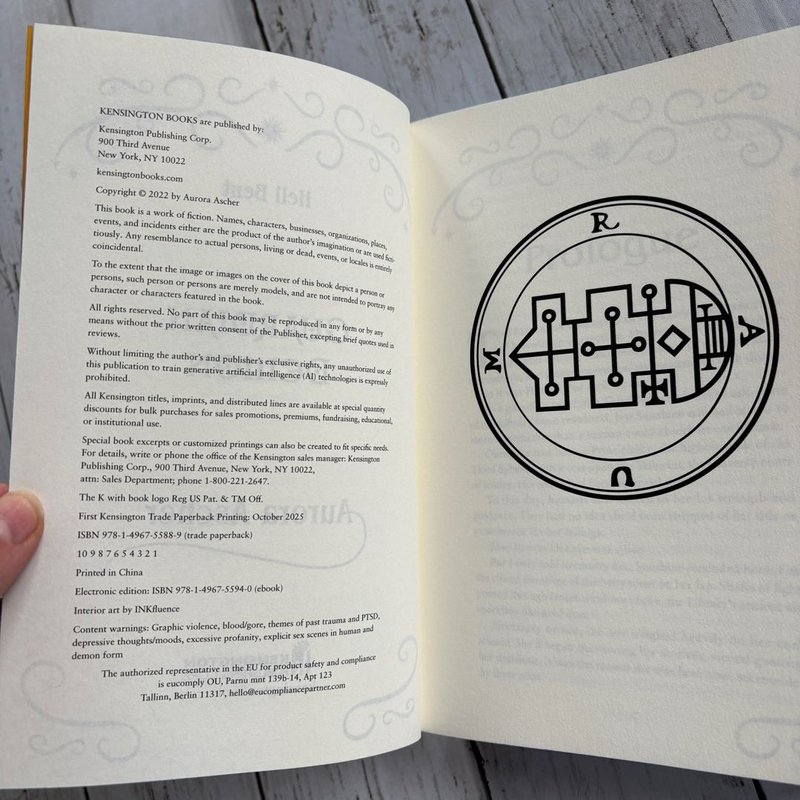 KENSINGTON BOOKS are published by:
Kensington Publishing Corp.
900 Third Avenue
New York, NY 10022
kensingtonbooks.com
Copyright © 2022 by Aurora Ascher
This book is a work of fiction. Names, characters, businesses, organizations, places,
events, and incidents either are the product of the author's imagination or are used ficti-
tiously. Any resemblance to actual persons, living or dead, events, or locales is entirely
coincidental.
To the extent that the image or images on the cover of this book depict a person or
persons, such person or persons are merely models, and are not intended to portray any
character or characters featured in the book.
All rights reserved. No part of this book may be reproduced in any form or by any
means without the prior written consent of the Publisher, excepting brief quotes used in
reviews.
Without limiting the author's and publisher's exclusive rights, any unauthorized use of
this publication to train generative artificial intelligence (AI) technologies is expressly
prohibited.
All Kensington titles, imprints, and distributed lines are available at special quantity
discounts for bulk purchases for sales promotions, premiums, fundraising, educational,
or institutional use.
Special book excerpts or customized printings can also be created to fit specific needs.
For details, write or phone the office of the Kensington sales manager: Kensington
Publishing Corp., 900 Third Avenue, New York, NY 10022,
attn: Sales Department; phone 1-800-221-2647.
The K with book logo Reg US Pat. & TM Off.
First Kensington Trade Paperback Printing: October 2025
ISBN 978-1-4967-5588-9 (trade paperback)
10 9 8 7 6 5 4 3 2 1
Printed in China
Electronic edition: ISBN 978-1-4967-5594-0 (ebook)
Interior art by INKfluence
Content warnings: Graphic violence, blood/gore, themes of past trauma and PTSD,
depressive thoughts/moods, excessive profanity, explicit sex scenes in human and
demon form
The authorized representative in the EU for product safety and compliance
is eucomply OU, Parnu mnt 139b-14, Apt 123
Tallinn, Berlin 11317, hello@eucompliancepartner.com
M
R
A
U